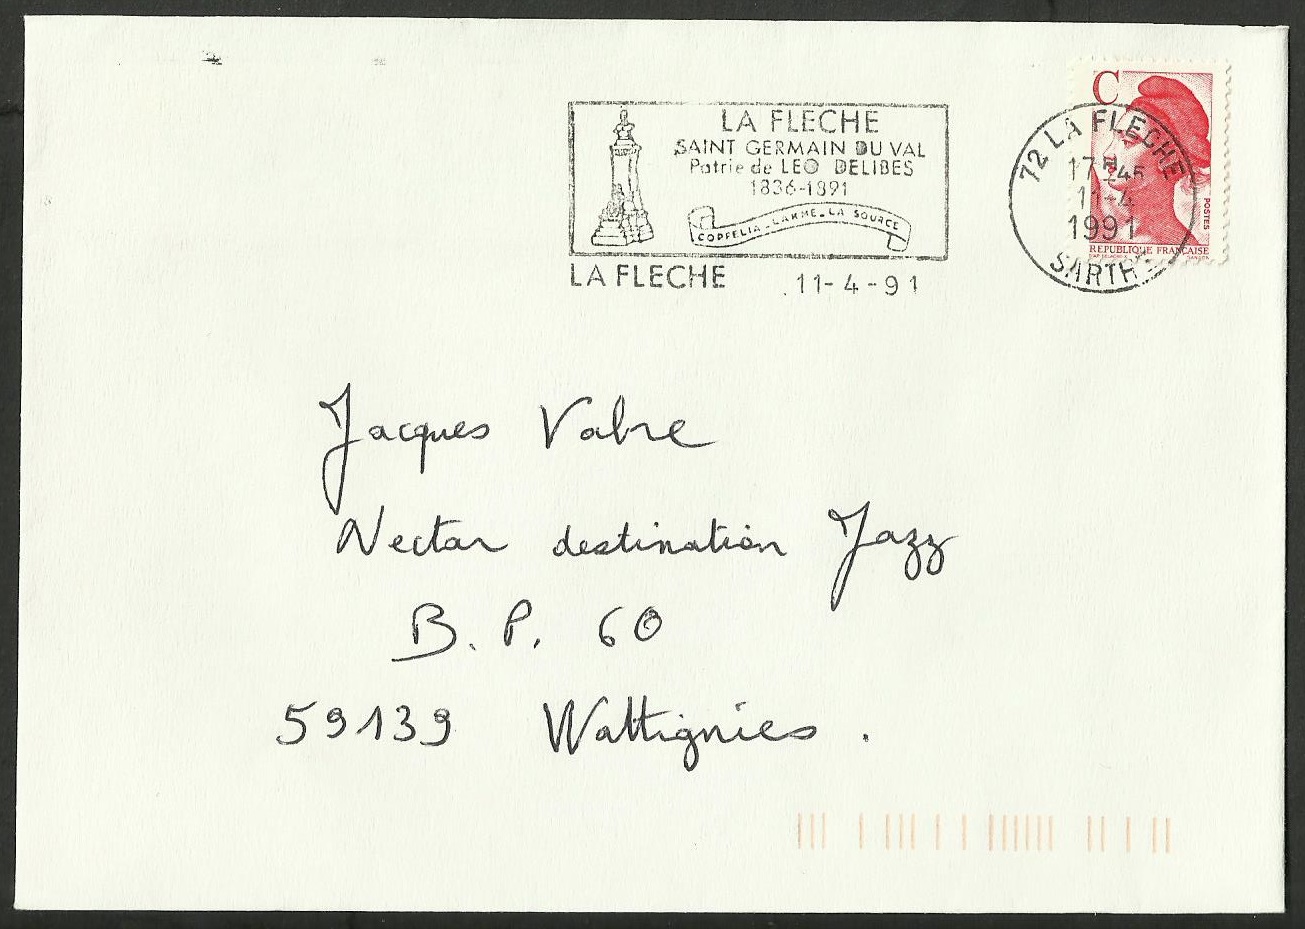 LA FLECHE
SAINT GERMAIN DU VAL
Patrie de LEO DELIBES
1836-1891
COPPELIA_LAKME_LA SOURCE
LA FLECHE 11-4-91
C
72 LA FLECHE
17H45
11-4
1991
SARTHE
POSTES
REPUBLIQUE FRANÇAISE
Jacques Vabre
Nectar destination Jazz
B.P. 60
59139 Wattignies.